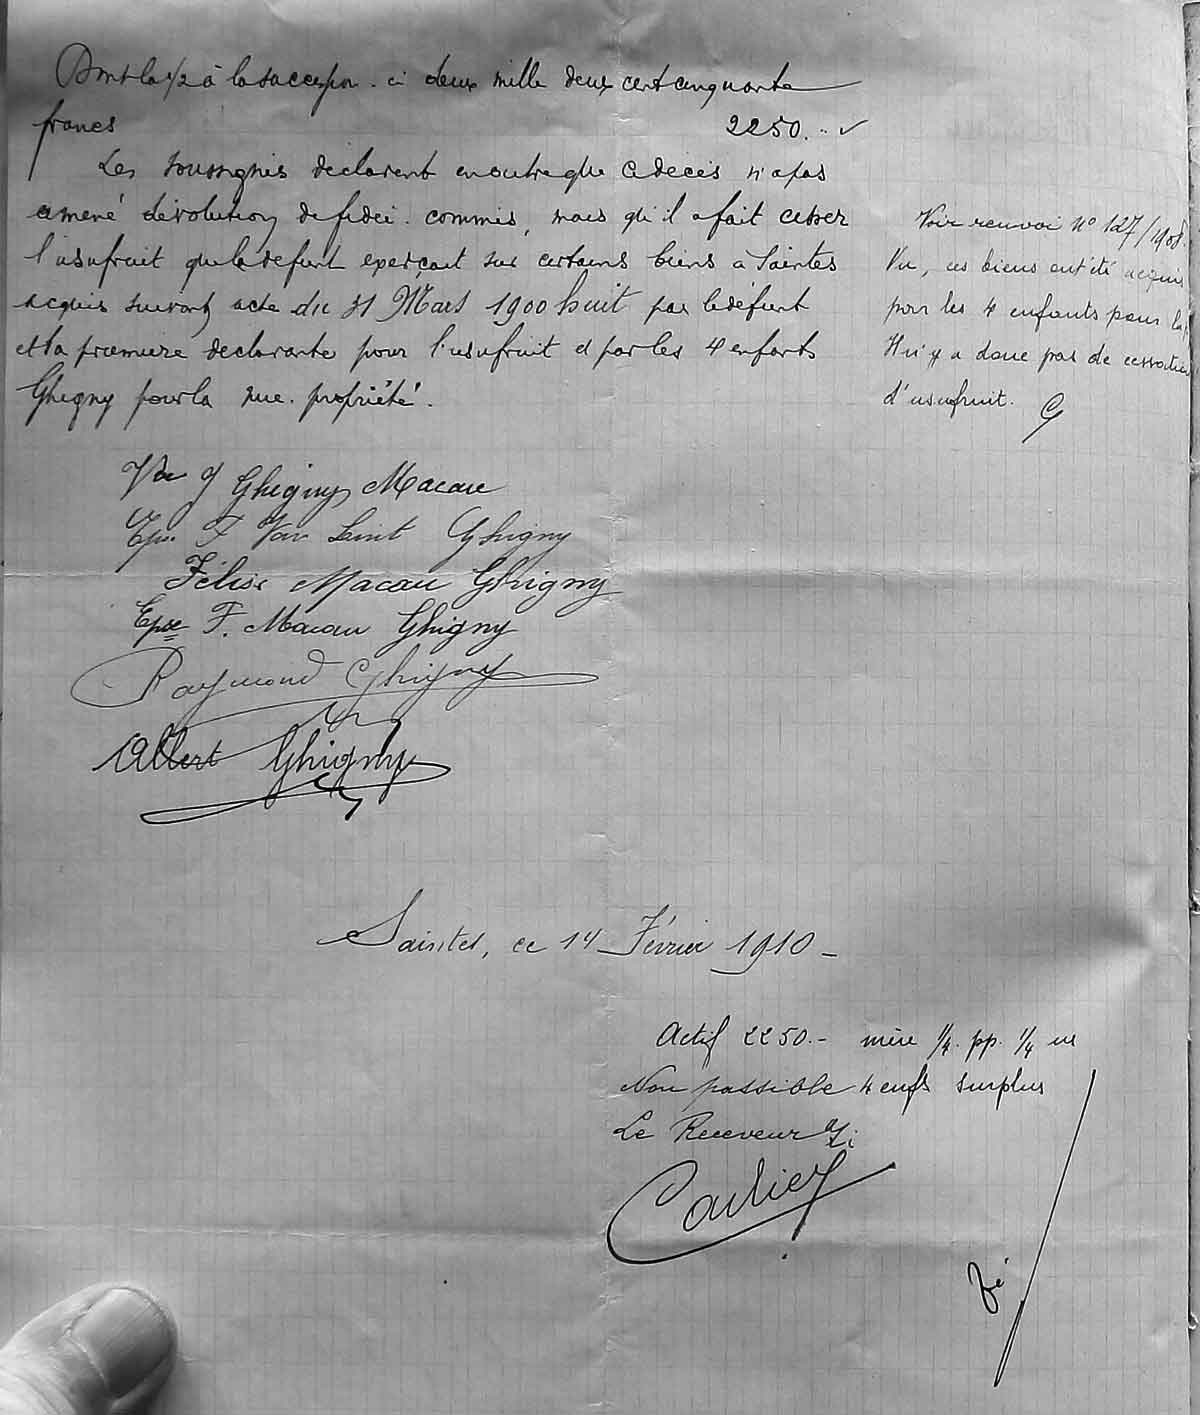 Dont la 1/2 à la succession. ci deux mille deux cent cinquante
francs 2250. -
Les soussignés déclarent en outre que ce décès n'a pas
amené dévolution de fidéi. commis, mais qu'il a fait cesser
l'usufruit que le défunt exerçait sur certains biens à Saintes
acquis suivant acte du 31 Mars 1900 huit par le défunt
et la première déclarante pour l'usufruit et par les 4 enfants
Ghigny pour la nue. propriété.
Voir renvoi n° 127/1908.
Vu, ces biens ont été acquis
pour les 4 enfants pour la
Il n'y a donc pas de cessation
d'usufruit. G
Vve J Ghigny Macau
Epse F Van Ghigny
Félise Macau Ghigny
Epse F. Macau Ghigny
Raymond Ghigny
Albert Ghigny
Saintes, ce 14 Février 1910 -
Actif 2250.- mère 1/4. pp. 1/4 us
Non passible 4 enfs surplus
Le Receveur
Carlier